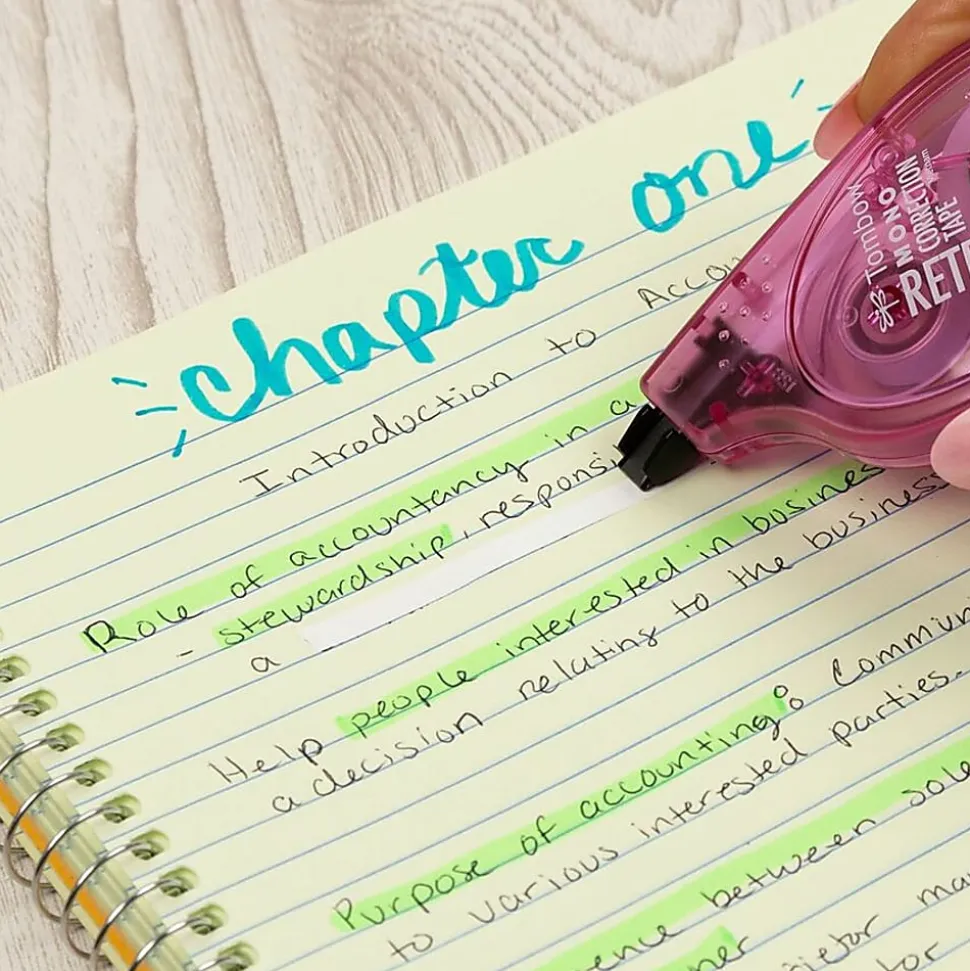 chapter one
Introduction to Accon
Role of accountancy in a
- stewardship, responsi
a
Help people interested in business
a decision relating to the business
Purpose of accounting: Commun
to various interested parties.
ence between sole
ner ietor ma
tor
Tombow
MONO
CORRECTION
TAPE
RET